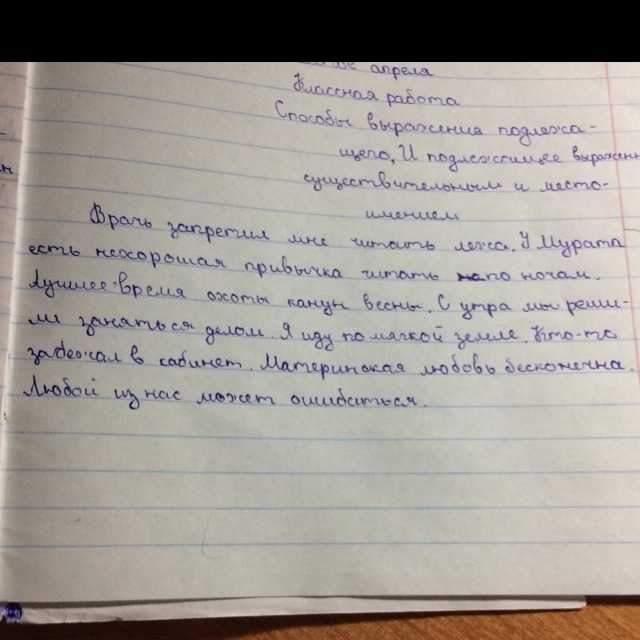 апреля
Классная работа
Способы выражения подлежа-
щего. И подлежащее выражен
существительным и место-
имением
Врачь запретил мне читать лежа. У Мурата
есть нехорошая привычка читать по ночам.
Лучшее время охоты канун весны. С утра мы реши-
ли заняться делом. Я иду по мягкой земле. Кто-то
забежал в кабинет. Материнская любовь бесконечна.
Любой из нас может ошибиться.